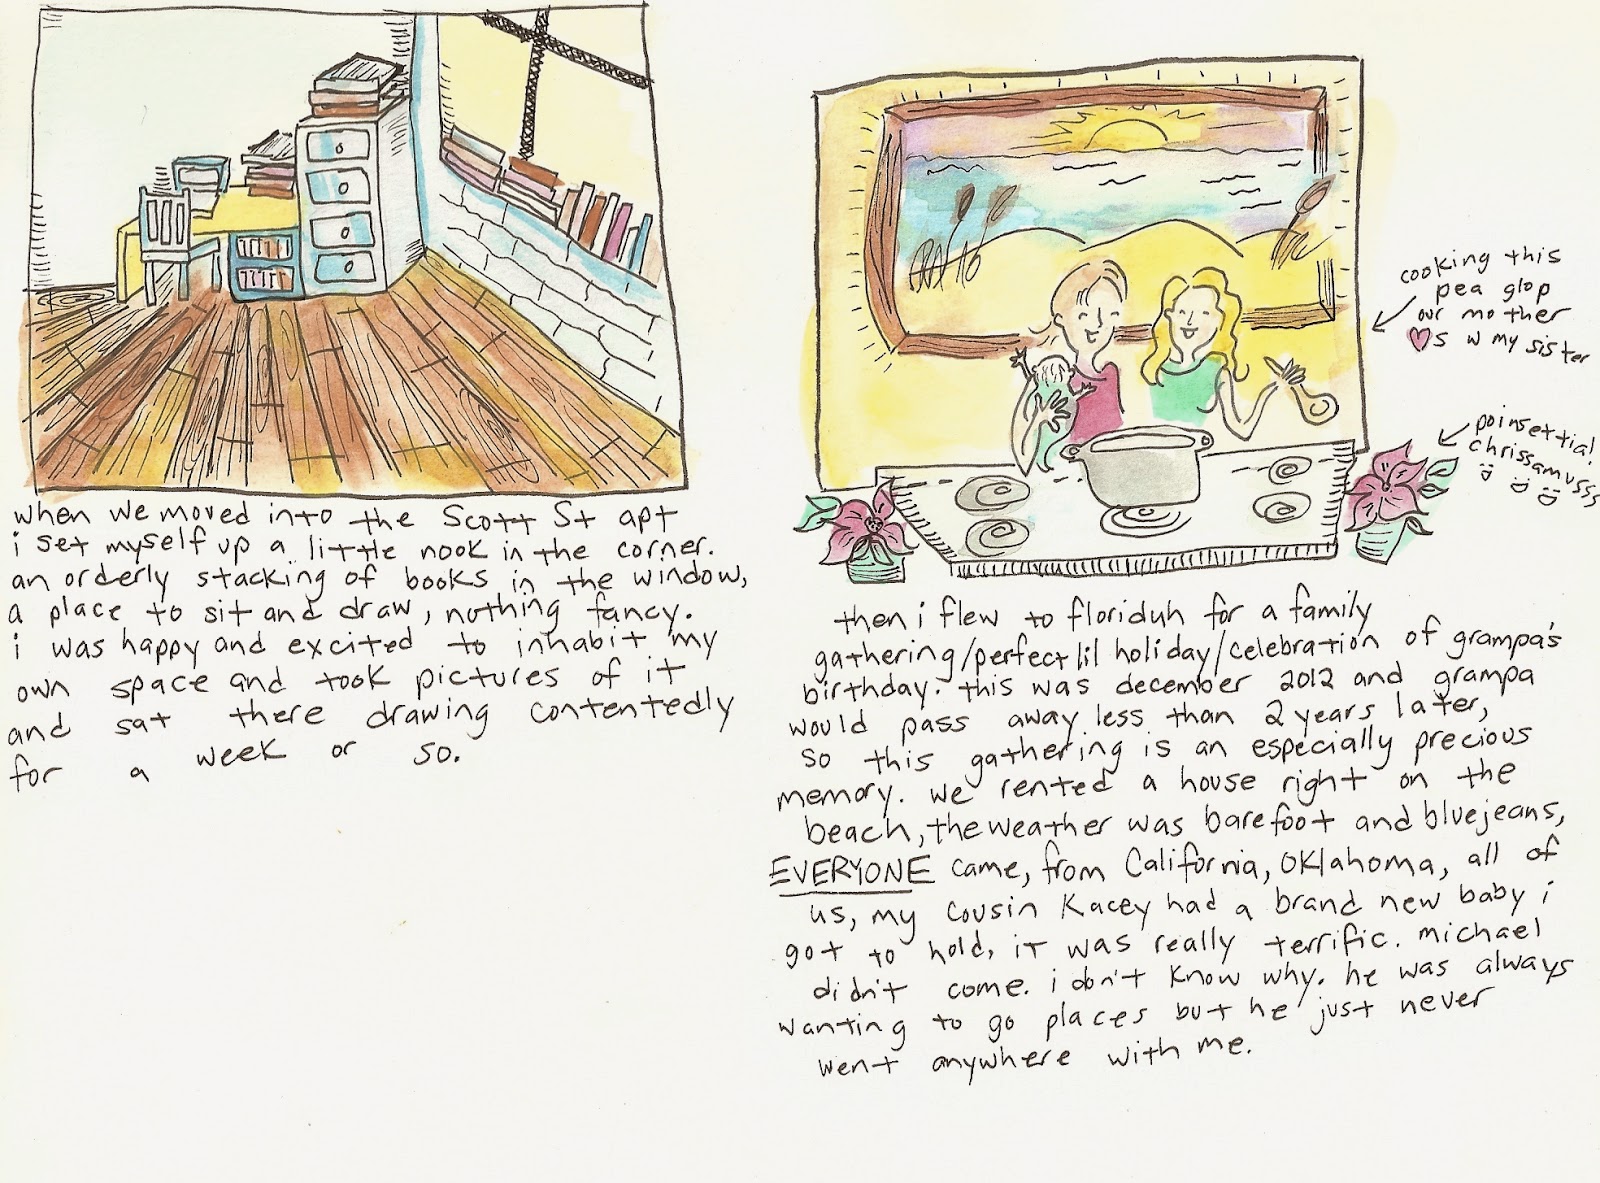 when we moved into the Scott St apt
i set myself up a little nook in the corner.
an orderly stacking of books in the window,
a place to sit and draw, nothing fancy.
i was happy and excited to inhabit my
own space and took pictures of it
and sat there drawing contentedly
for a week or so.
cooking this
pea glop
our mother
♡s w my sister
poinsettia!
chrissamusss
then i flew to floriduh for a family
gathering/perfect lil holiday/celebration of grampa's
birthday. this was december 2012 and grampa
would pass away less than 2 years later,
so this gathering is an especially precious
memory. we rented a house right on the
beach, the weather was barefoot and bluejeans,
EVERYONE came, from California, Oklahoma, all of
us, my cousin Kacey had a brand new baby i
got to hold, it was really terrific. michael
didn't come. i don't know why. he was always
wanting to go places but he just never
went anywhere with me.